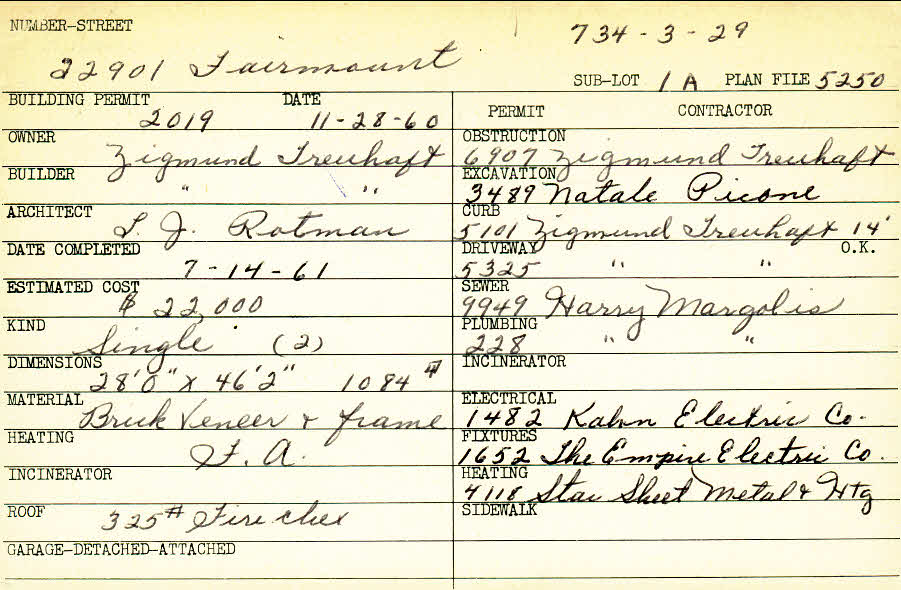 NUMBER-STREET
734-3-29
22901 Fairmount
SUB-LOT 1A PLAN FILE 5250
BUILDING PERMIT DATE
2019 11-28-60
OWNER
Zigmund Treuhaft
BUILDER
" "
ARCHITECT
L. J. Rotman
DATE COMPLETED
7-14-61
ESTIMATED COST
$ 22,000
KIND
Single (2)
DIMENSIONS
28'0" X 46'2" 1084
MATERIAL
Brick Veneer & frame
HEATING
F. A.
INCINERATOR
ROOF
325# Fire chex
GARAGE-DETACHED-ATTACHED
PERMIT CONTRACTOR
OBSTRUCTION
6907 Zigmund Treuhaft
EXCAVATION
3489 Natale Picone
CURB
5101 Zigmund Treuhaft 14'
DRIVEWAY O.K.
5325 " "
SEWER
9949 Harry Margolis
PLUMBING
228 " "
INCINERATOR
ELECTRICAL
1482 Kahn Electric Co.
FIXTURES
1652 The Empire Electric Co.
HEATING
4118 Star Sheet Metal & Htg
SIDEWALK